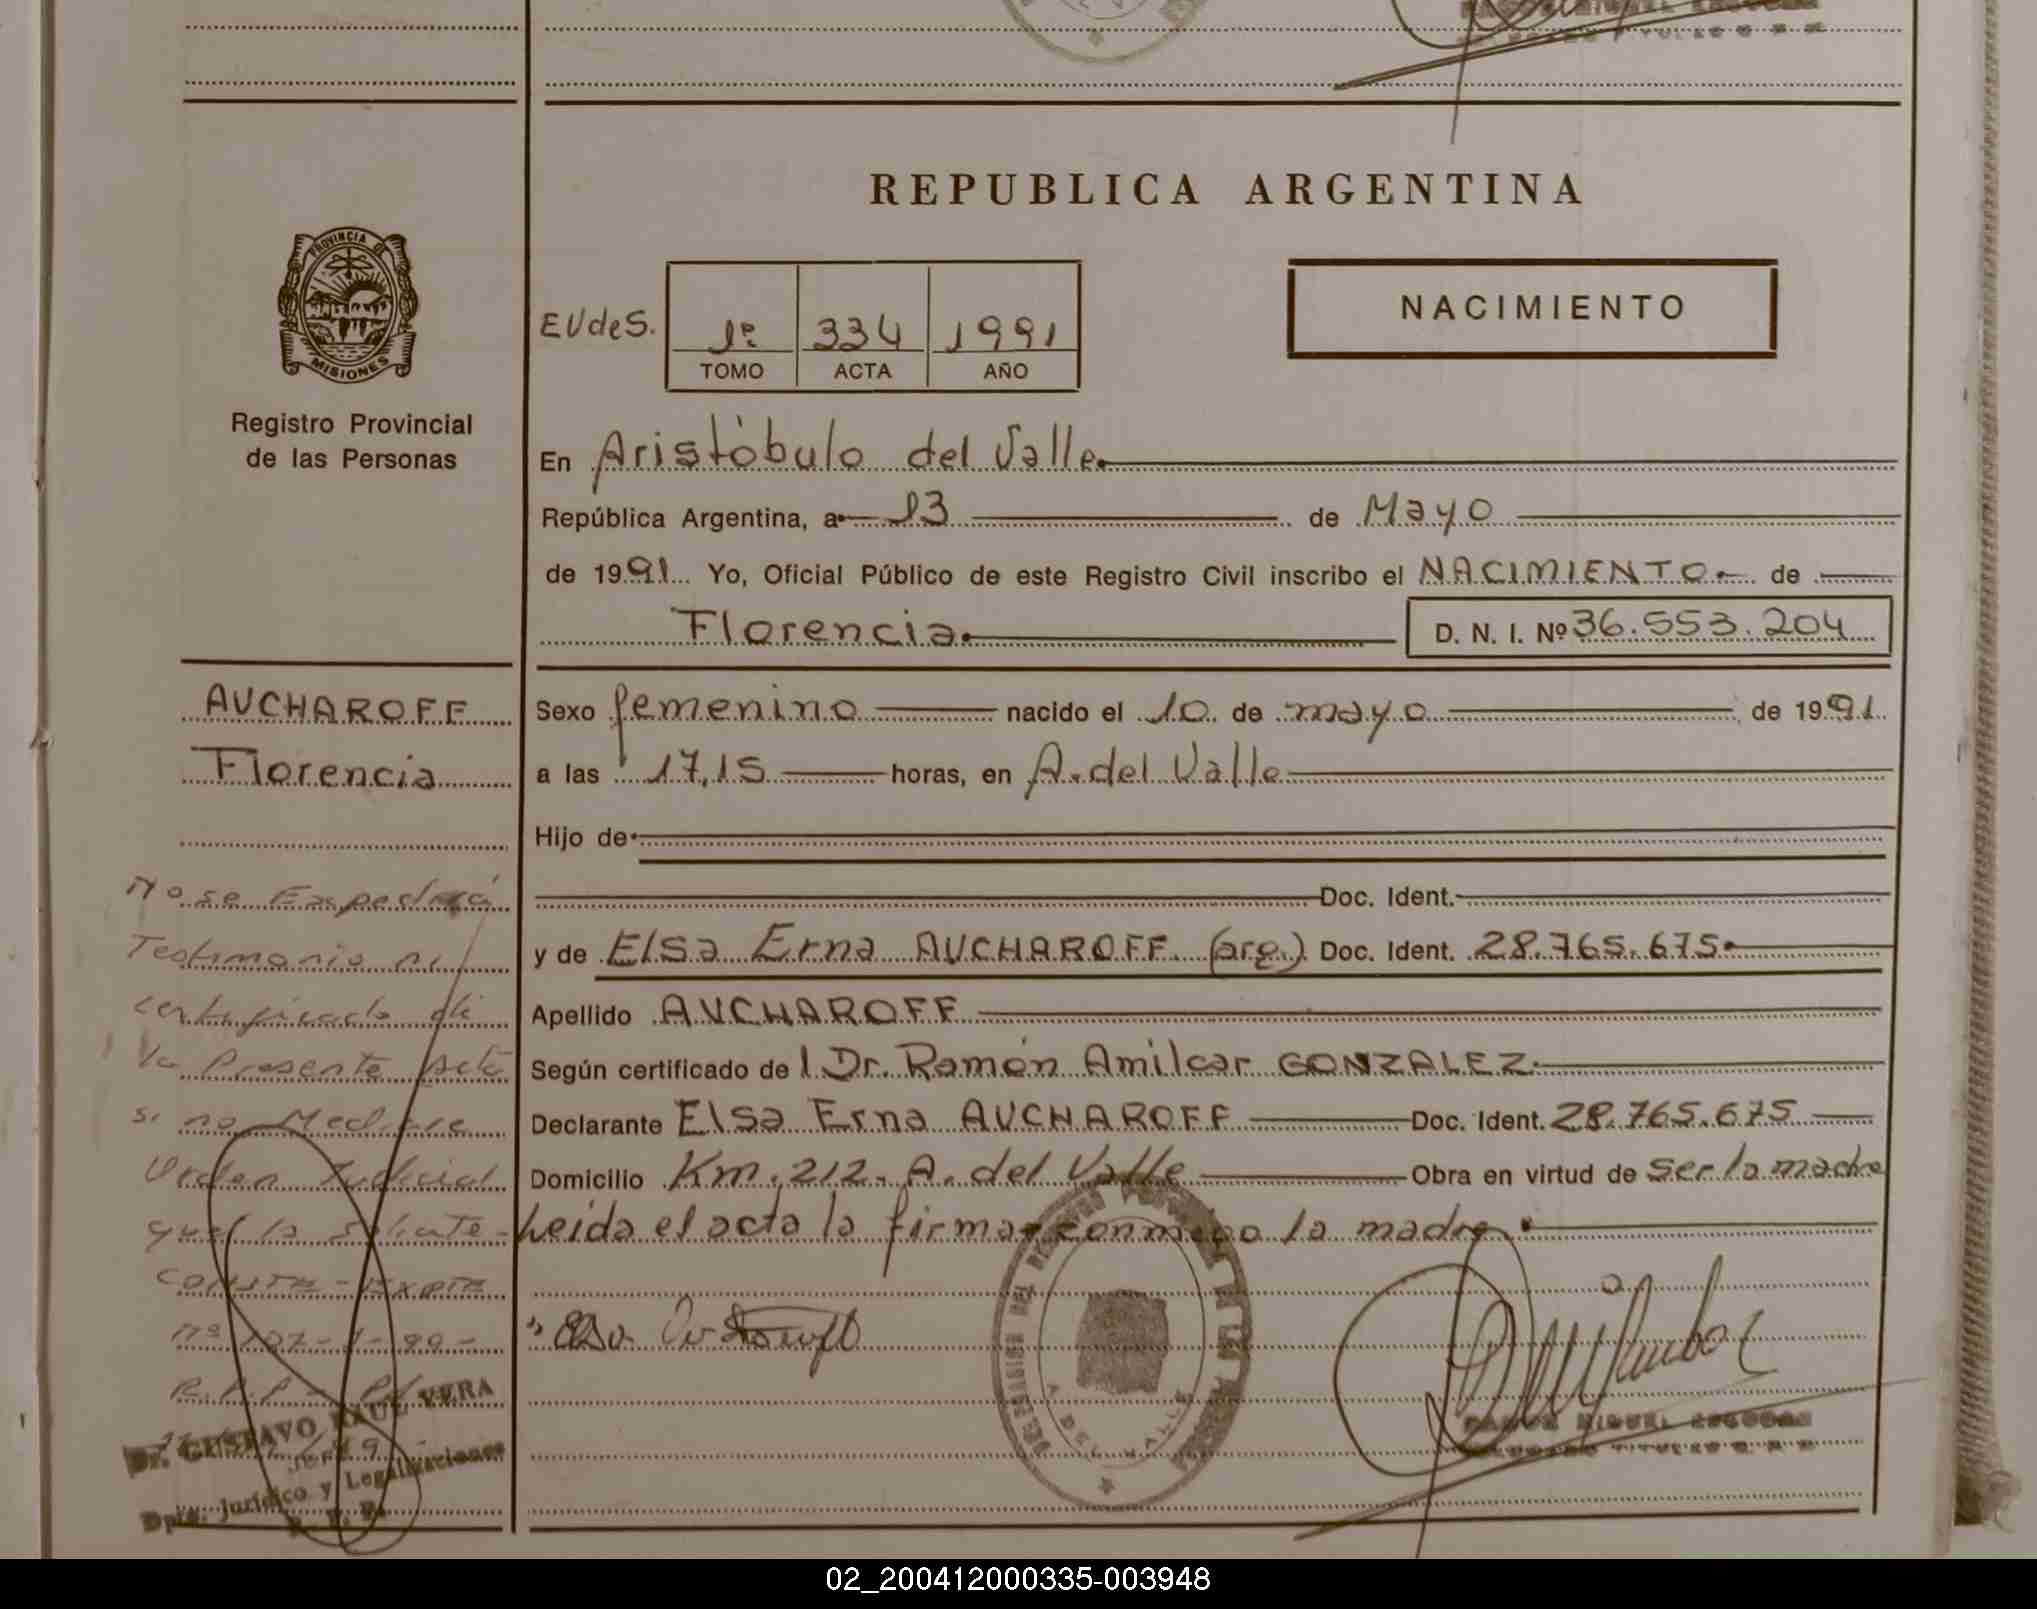 REPUBLICA ARGENTINA
PROVINCIA DE
MISIONES
Registro Provincial
de las Personas
EUdeS.
1º 334 1991
TOMO ACTA AÑO
NACIMIENTO
En Aristóbulo del Valle
República Argentina, a 13 de Mayo
de 1991 Yo, Oficial Público de este Registro Civil inscribo el NACIMIENTO de
Florencia D. N. I. Nº 36.553.204
AUCHAROFF
Florencia
Sexo femenino nacido el 10 de mayo de 1991
a las 17,15 horas, en A. del Valle
Hijo de
Doc. Ident.
y de Elsa Erna AUCHAROFF (arg.) Doc. Ident. 28.765.675
Apellido AUCHAROFF
Según certificado de l Dr. Ramón Amilcar GONZALEZ
Declarante Elsa Erna AUCHAROFF Doc. Ident. 28.765.675
Domicilio Km. 212. A. del Valle Obra en virtud de ser la madre
Leida el acta la firma conmigo la madre
No se Expedirá
Testimonio ni
certificado de
la Presente Acta
si no Mediare
Orden Judicial
que la solicite-
CONSTE - EXPTE
Nº 107-1-99-
R.P.P-
Dr. GUSTAVO RAUL VERA
Dpto. Jurídico y Legalizaciones
R. P. P.
A. DEL VALLE
RAMON MIGUEL ESCOBAR
02_200412000335-003948